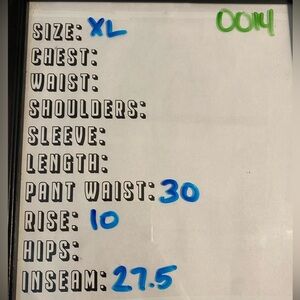 SIZE: XL 0014
CHEST:
WAIST:
SHOULDERS:
SLEEVE:
LENGTH:
PANT WAIST: 30
RISE: 10
HIPS:
INSEAM: 27.5